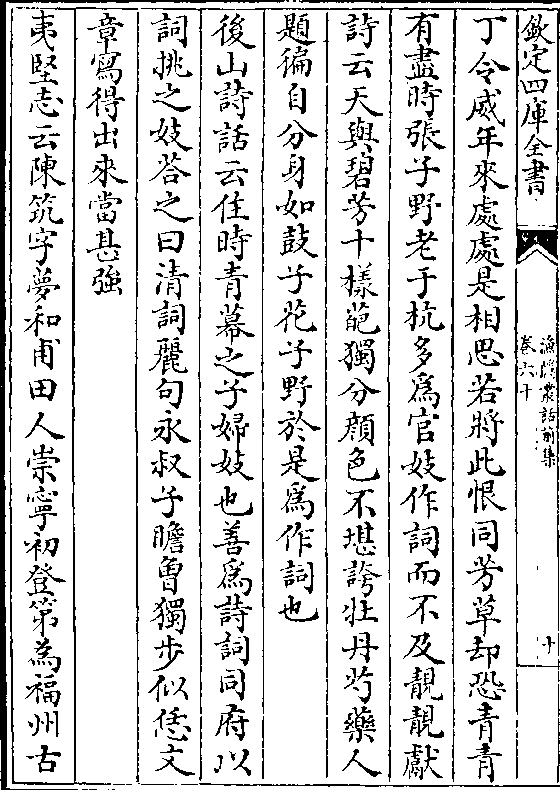 欽定四庫全書
漁隱叢話前集
卷六十
十
丁令威年來處處是相思若將此恨同芳草却恐青青
有盡時張子野老于杭多為官妓作詞而不及靚靚獻
詩云天與碧芳十樣葩獨分顔色不堪誇牡丹芍藥人
題徧自分身如鼓子花子野於是為作詞也
後山詩話云住時青幕之子婦妓也善為詩詞同府以
詞挑之妓荅之曰清詞麗句永叔子瞻曽獨步似恁文
章寫得出來當甚強
夷堅志云陳筑字夢和甫田人崇寧初登第為福州古